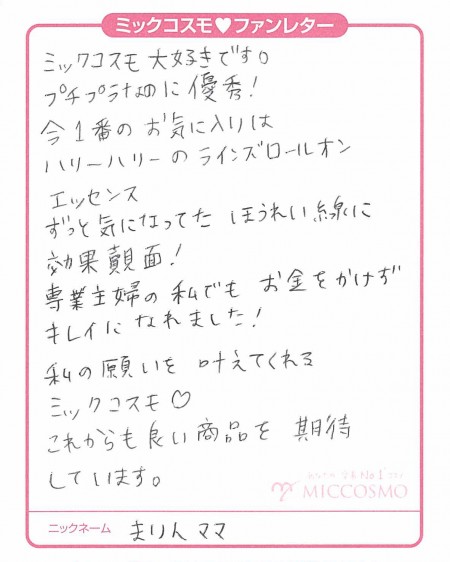 ミックコスモ♥ファンレター
ミックコスモ大好きです。
プチプラなのに優秀!
今1番のお気に入りは
ハリーハリーのラインズロールオン
エッセンス
ずっと気になってたほうれい線に
効果覿面!
専業主婦の私でもお金をかけず
キレイになれました!
私の願いを叶えてくれる
ミックコスモ♡
これからも良い商品を期待
しています。
No.1
MICCOSMO
ニックネーム まりんママ